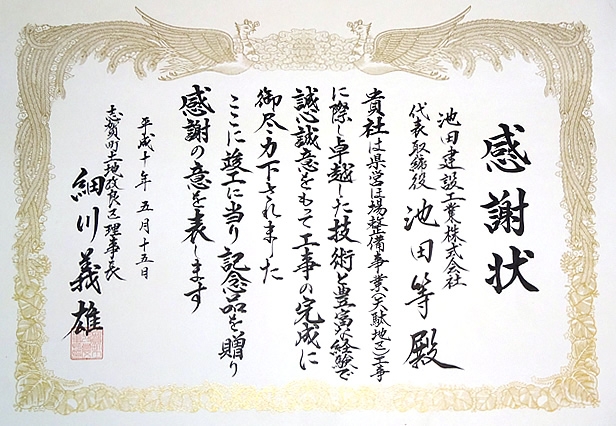 感謝状
池田建設工業株式会社
代表取締役 池田等殿
貴社は県営ほ場整備事業(矢駄地区)工事
に際し卓越した技術と豊富な経験で
誠心誠意をもって工事の完成に
御尽力下されました
ここに竣工に当り記念品を贈り
感謝の意を表します
平成十年五月十五日
志賀町土地改良区理事長
細川義雄